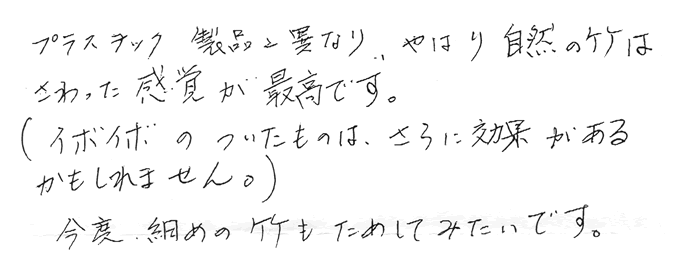 プラスチック製品と異なり、やはり自然の竹は
さわった感覚が最高です。
(イボイボのついたものは、さらに効果がある
かもしれません。)
今度、細めの竹もためしてみたいです。